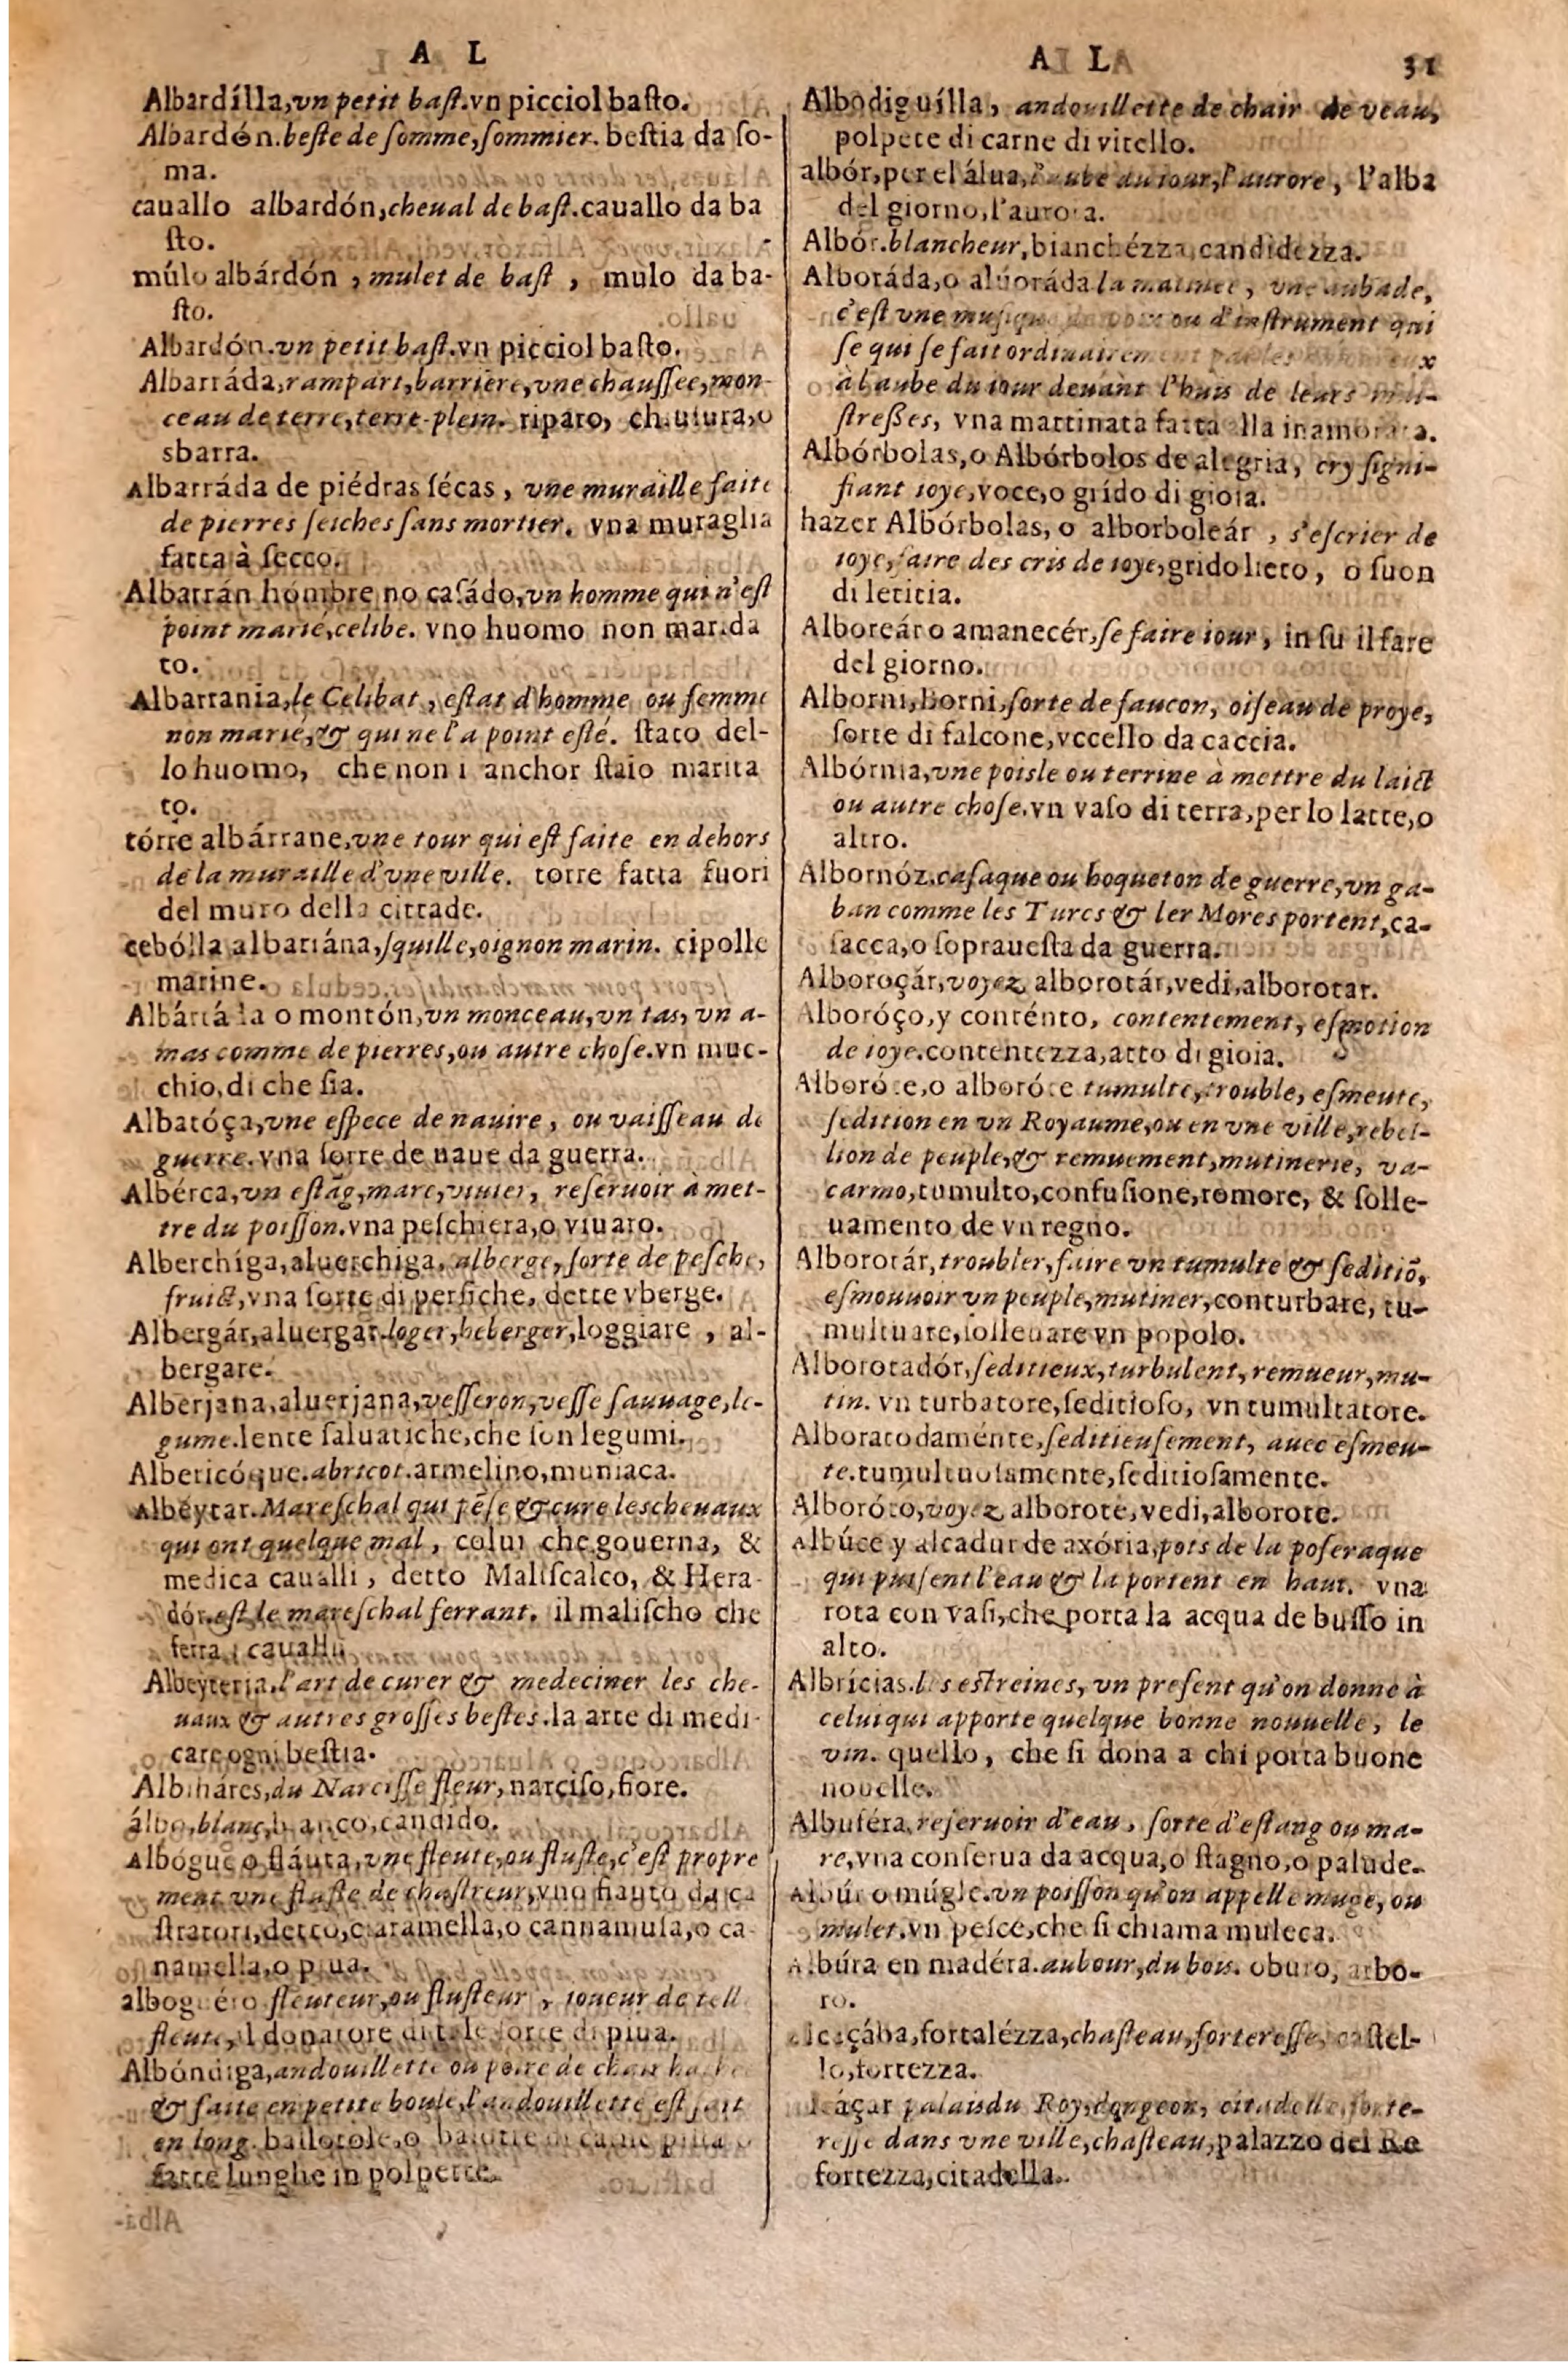 A L
Albardílla,vn petit baſt.vn picciol baſto.
Albardón.beſte de ſomme,ſommier. beſtia da ſo-
ma.
cauallo albardón,cheual de baſt.cauallo da ba
ſto.
múlo albárdón , mulet de baſt , mulo da ba-
ſto.
Albardón.vn petit baſt.vn picciol baſto.
Albarráda,rampart,barriere,vne chauſſee,mon-
ceau de terre,terre-plein. riparo, chiuſura,o
sbarra.
Albarráda de piédras ſécas , vne muraille faite
de pierres ſeiches ſans mortier. vna muraglia
fatta à ſecco.
Albarrán hómbre no caſádo,vn homme qui n'eſt
point marié,celibe. vno huomo non marida
to.
Albarrania,le Celibat , eſtat d'homme ou femme
non marié,& qui ne l'a point eſté. ſtato del-
lo huomo, che non i anchor ſtato marita
to.
tórre albárrane,vne tour qui eſt faite en dehors
de la muraille d'vne ville. torre fatta fuori
del muro della cittade.
cebólla albarrána,ſquille,oignon marin. cipolle
marine.
o montón,vn monceau,vn tas, vn a-
mas comme de pierres,ou autre choſe.vn muc-
chio,di che ſia.
Albatóça,vne eſpece de nauire , ou vaiſſeau de
guerre.vna ſorte de naue da guerra.
Albérca,vn eſtãg,mare,viuier, reſeruoir à met-
tre du poiſſon.vna peſchiera,o viuaro.
Alberchíga,aluerchiga, alberge, ſorte de peſche,
fruict,vna ſorte di perſiche, dette vberge.
Albergár,aluergar.loger,heberger,loggiare , al-
bergare.
Alberjana,aluerjana,veſſeron,veſſe ſauuage,le-
gume.lente ſaluatiche,che ſon legumi.
Albericóque.abricot.armelino,muniaca.
Albéytar.Mareſchal qui pẽſe & cure les cheuaux
qui ont quelque mal , colui che gouerna, &
medica caualli , detto Maliſcalco, & Hera-
dór.eſt le mareſchal ferrant. il maliſcho che
ferra i caualli.
Albeyteria.l'art de curer & medeciner les che-
uaux & autres groſſes beſtes.la arte di medi-
care ogni beſtia.
Albihares,du Narciſſe fleur, narciſo,fiore.
álbo,blanc,bianco,candido.
Albógue o fláuta,vne fleute,ou fluſte,c'eſt propre
ment vne fluſte de chaſtreur,vno fiauto da ca
ſtratori,detto,ciaramella,o cannamuſa,o ca-
namella,o piua.
alboguéro fleuteur,ou fluſteur , ioueur de tell
fleute, il donatore di tale ſorte di piua.
Albóndiga,andouillette ou poire de chair hachee
& faite en petite boule,l'andouillette eſt fait
en long. ballotole,o balotte di carne piſta o
fatte lunghe in polpette.
A L
31
Albodiguílla, andouillette de chair de veau,
polpete di carne di vitello.
albór,per el álua,l'aube du iour,l'aurore , l'alba
del giorno,l'aurora.
Albór.blancheur,bianchézza,candidezza.
Alboráda,o alúoráda la matinee , vne aubade,
c'eſt vne muſique de voix ou d'inſtrument qui
ſe qui ſe fait ordinairement par les
à l'aube du iour deuant l'huis de leurs mai-
ſtreßes, vna mattinata fatta alla inamorata.
Albórbolas,o Albórbolos de alegria, cry ſigni-
fiant ioye,voce,o grído di gioia.
hazer Albórbolas, o alborboleár , s'eſcrier de
ioye, faire des cris de ioye,grido lieto , o ſuon
di letitia.
Alboreár o amanecér,ſe faire iour , in ſu il fare
del giorno.
Alborni,Borni,ſorte de faucon, oiſeau de proye,
ſorte di falcone,vccello da caccia.
Albórnia,vne poisle ou terrine à mettre du laict
ou autre choſe.vn vaſo di terra,per lo latte,o
altro.
Albornóz.caſaque ou hoqueton de guerre,vn ga-
ban comme les Turcs & ler Mores portent,ca-
ſacca,o ſoprauеſta da guerra.
Alboroçár,voyez alborotár,vedi,alborotar.
Alboróço,y conténto, contentement, eſmotion
de ioye.contentezza,atto di gioia.
Alboróte,o alboróte tumulte,trouble, eſmeute,
ſedition en vn Royaume,ou en vne ville,rebel-
lion de peuple,& remuement,mutinerie, va-
carmo,tumulto,confuſione,romore, & ſolle-
uamento de vn regno.
Alborotár,troubler,faire vn tumulte & ſeditiõ,
eſmouuoir vn peuple,mutiner,conturbare, tu-
multuare,ſolleuare vn popolo.
Alborotadór,ſeditieux,turbulent,remueur,mu-
tin. vn turbatore,ſeditioſo, vn tumultatore.
Alboratodaménte,ſeditieuſement, auec eſmeu-
te.tumultuoſamente,ſeditioſamente.
Alboróto,voyez alborote,vedi,alborote.
Albúce y alcadur de axória,pots de la poſeraque
qui puiſent l'eau & la portent en haut. vna
rota con vaſi,che porta la acqua de buſſo in
alto.
Albrícias.les eſtreines, vn preſent qu'on donne à
celui qui apporte quelque bonne nouuelle, le
vin. quello, che ſi dona a chi porta buone
nouelle.
Albuféra,reſeruoir d'eau, ſorte d'eſtang ou ma-
re,vna conſerua da acqua,o ſtagno,o palude.
Albúr o múgle.vn poiſſon qu'on appelle muge, ou
mulet.vn peſce,che ſi chiama muleca.
Albúra en madéra.aubour,du bois. oburo, arbo-
ro.
Alcaçába,fortalézza,chaſteau,fortereſſe, caſtel-
lo,fortezza.
palais du Roy,dongeon, citadelle,forte-
reſſe dans vne ville,chaſteau,palazzo del Re
fortezza,citadella.